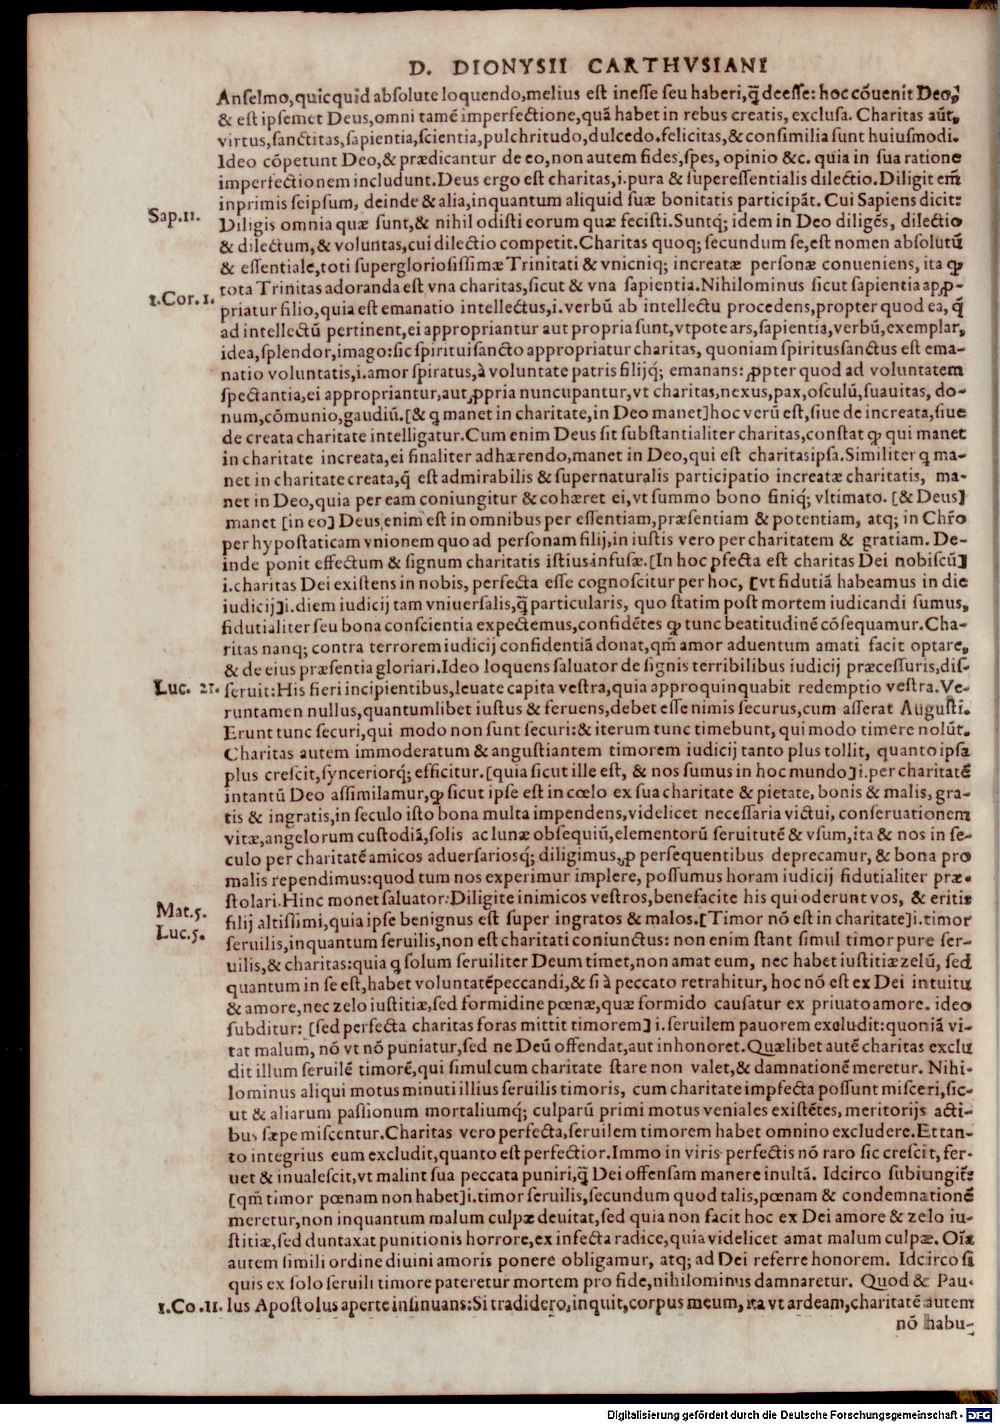 D. DIONYSII CARTHVSIANI
Anselmo,quicquid absolute loquendo,melius est inesse seu haberi,q̃ deesse: hoc cõuenit Deo,
& est ipsemet Deus,omni tamẽ imperfectione,quã habet in rebus creatis, exclusa. Charitas aũt,
virtus,sanctitas,sapientia,scientia,pulchritudo,dulcedo.felicitas,& consimilia sunt huiusmodi.
Ideo cõpetunt Deo,& prædicantur de eo,non autem fides,spes, opinio &c. quia in sua ratione
imperfectionem includunt.Deus ergo est charitas,i.pura & superessentialis dilectio.Diligit em̃
inprimis seipsum, deinde & alia,inquantum aliquid suæ bonitatis participãt. Cui Sapiens dicit:
Sap.11.
Diligis omnia quæ sunt,& nihil odisti eorum quæ fecisti.Suntq; idem in Deo diligẽs, dilectio
& dilectum,& voluntas,cui dilectio competit.Charitas quoq; secundum se,est nomen absolutũ
& essentiale,toti supergloriosissimæ Trinitati & vnicuiq; increatæ personæ conueniens, ita ꝙ
tota Trinitas adoranda est vna charitas,sicut & vna sapientia.Nihilominus sicut sapientia apꝓ-
1.Cor.1.
priatur filio,quia est emanatio intellectus,i.verbũ ab intellectu procedens,propter quod ea, q̃
ad intellectũ pertinent,ei appropriantur aut propria sunt,vtpote ars,sapientia,verbũ,exemplar,
idea,splendor,imago:sic spirituisancto appropriatur charitas, quoniam spiritussanctus est ema-
natio voluntatis,i.amor spiratus,à voluntate patris filijq; emanans: ꝓpter quod ad voluntatem
spectantia,ei appropriantur,aut ꝓpria nuncupantur,vt charitas,nexus,pax,osculũ,suauitas, do-
num,cõmunio,gaudiũ.[& q manet in charitate,in Deo manet]hoc verũ est,siue de increata,siue
de creata charitate intelligatur.Cum enim Deus sit substantialiter charitas,constat ꝙ qui manet
in charitate increata,ei finaliter adhærendo,manet in Deo,qui est charitas ipsa.Similiter q ma-
net in charitate creata,q̃ est admirabilis & supernaturalis participatio increatæ charitatis, ma-
net in Deo,quia per eam coniungitur & cohæret ei,vt summo bono finiq; vltimato. [& Deus]
manet [in eo] Deus enim est in omnibus per essentiam,præsentiam & potentiam, atq; in Chr̃o
per hypostaticam vnionem quo ad personam filij,in iustis vero per charitatem & gratiam. De-
inde ponit effectum & signum charitatis istius infusæ.[In hoc ꝑfecta est charitas Dei nobiscũ]
i.charitas Dei existens in nobis, perfecta esse cognoscitur per hoc, [vt fidutiã habeamus in die
iudicij]i.diem iudicij tam vniuersalis,q̃ particularis, quo statim post mortem iudicandi sumus,
fidutialiter seu bona conscientia expectemus,confidẽtes ꝙ tunc beatitudinẽ cõsequamur.Cha-
ritas nanq; contra terrorem iudicij confidentiã donat,qm̃ amor aduentum amati facit optare,
& de eius præsentia gloriari.Ideo loquens saluator de signis terribilibus iudicij præcessuris,dis-
Luc. 21.
seruit:His fieri incipientibus,leuate capita vestra,quia appropinquabit redemptio vestra.Ve-
runtamen nullus,quantumlibet iustus & feruens,debet esse nimis securus,cum asserat Augusti.
Erunt tunc securi,qui modo non sunt securi:& iterum tunc timebunt, qui modo timere nolũt.
Charitas autem immoderatum & angustiantem timorem iudicij tanto plus tollit, quanto ipsa
plus crescit,synceriorq; efficitur.[quia sicut ille est, & nos sumus in hoc mundo]i.per charitatẽ
intantũ Deo assimilamur,ꝙ sicut ipse est in cœlo ex sua charitate & pietate, bonis & malis, gra-
tis & ingratis,in seculo isto bona multa impendens,videlicet necessaria victui, conseruationem
vitæ,angelorum custodiã,solis ac lunæ obsequiũ,elementorũ seruitutẽ & vsum,ita & nos in se-
culo per charitatẽ amicos aduersariosq; diligimus,ꝓ persequentibus deprecamur, & bona pro
malis rependimus:quod tum nos experimur implere, possumus horam iudicij fidutialiter præ-
stolari.Hinc monet saluator:Diligite inimicos vestros,benefacite his qui oderunt vos, & eritis
Mat.5.
filij altissimi,quia ipse benignus est super ingratos & malos.[Timor nõ est in charitate]i.timor
Luc.5.
seruilis,inquantum seruilis,non est charitati coniunctus: non enim stant simul timor pure ser-
uilis,& charitas:quia q solum seruiliter Deum timet,non amat eum, nec habet iustitiæ zelũ, sed
quantum in se est,habet voluntatẽ peccandi,& si à peccato retrahitur, hoc nõ est ex Dei intuitu
& amore,nec zelo iustitiæ,sed formidine pœnæ,quæ formido causatur ex priuato amore. ideo
subditur: [sed perfecta charitas foras mittit timorem] i.seruilem pauorem excludit:quoniã vi-
tat malum, nõ vt nõ puniatur,sed ne Deũ offendat,aut inhonoret.Quælibet autẽ charitas exclu
dit illum seruilẽ timorẽ,qui simul cum charitate stare non valet,& damnationẽ meretur. Nihi-
lominus aliqui motus minuti illius seruilis timoris, cum charitate imꝑfecta possunt misceri,sic-
ut & aliarum passionum mortaliumq; culparũ primi motus veniales existẽtes, meritorijs acti-
bus sæpe miscentur.Charitas vero perfecta,seruilem timorem habet omnino excludere.Et tan-
to integrius eum excludit,quanto est perfectior.Immo in viris perfectis nõ raro sic crescit, fer-
uet & inualescit,vt malint sua peccata puniri,q̃ Dei offensam manere inultã. Idcirco subiungit̃:
[qm̃ timor pœnam non habet]i.timor seruilis,secundum quod talis,pœnam & condemnationẽ
meretur,non inquantum malum culpæ deuitat,sed quia non facit hoc ex Dei amore & zelo iu-
stitiæ,sed duntaxat punitionis horrore,ex infecta radice,quia videlicet amat malum culpæ. Oĩa
autem simili ordine diuini amoris ponere obligamur, atq; ad Dei referre honorem. Idcirco si
quis ex solo seruili timore pateretur mortem pro fide,nihilominus damnaretur. Quod & Pau-
1.Co.11.
lus Apostolus aperte insinuans:Si tradidero,inquit,corpus meum, ita vt ardeam,charitatẽ autem
nõ habu-
Digitalisierung gefördert durch die Deutsche Forschungsgemeinschaft - DFG